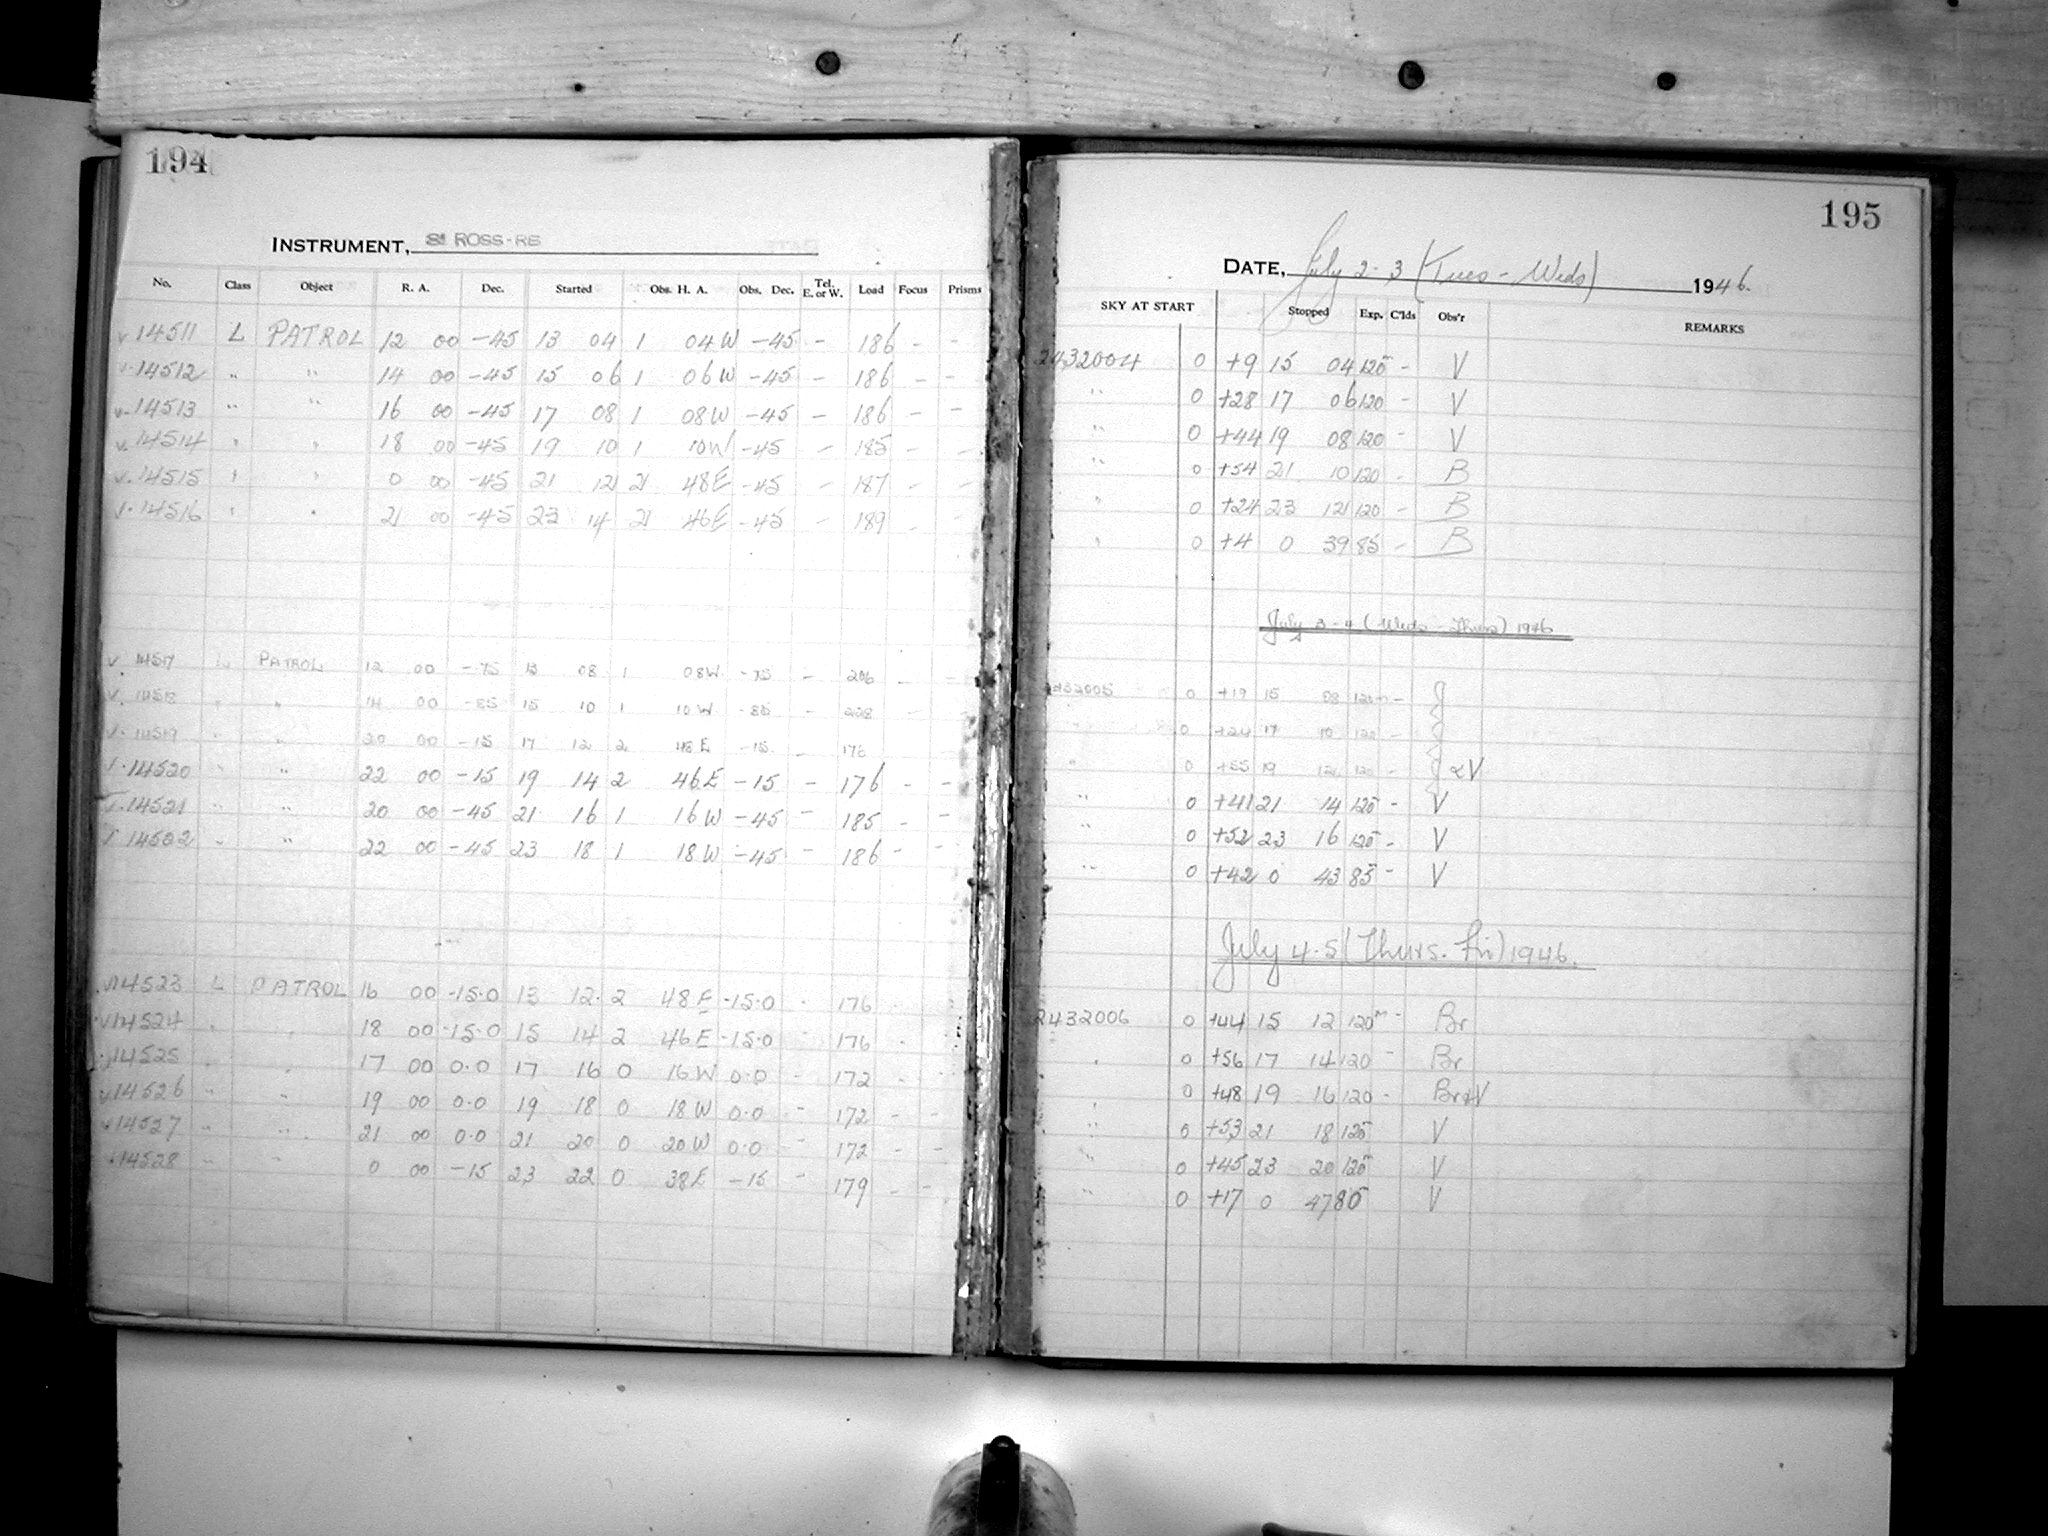 194
INSTRUMENT, ROSS-RB
No. Class Object R. A. Dec. Started Obs. H. A. Obs. Dec. Tel. E. or W. Load Focus Prisms
v 14511 L PATROL 12 00 -45 13 04 1 04W -45 - 186 - -
v 14512 " " 14 00 -45 15 06 1 06W -45 - 186 - -
v 14513 " " 16 00 -45 17 08 1 08W -45 - 186 - -
v 14514 " " 18 00 -45 19 10 1 10W -45 - 185 - -
v 14515 " " 0 00 -45 21 12 2 48E -45 - 187 - -
v 14516 " " 21 00 -45 23 14 2 46E -45 - 189 - -
v 14517 L PATROL 12 00 -75 13 08 1 08W -75 - 206 - -
v 14518 " " 14 00 -85 15 10 1 10W -85 - 228 -
v 14519 " " 20 00 -15 17 12 2 48E -15 - 176 -
v 14520 " " 22 00 -15 19 14 2 46E -15 - 176 - -
v 14521 " " 20 00 -45 21 16 1 16W -45 - 185 - -
v 14522 " " 22 00 -45 23 18 1 18W -45 - 186 - -
v 14523 L PATROL 16 00 -15.0 13 12 2 48E -15.0 - 176 -
v 14524 " " 18 00 -15.0 15 14 2 46E -15.0 176 -
v 14525 " " 17 00 0.0 17 16 0 16W 0.0 - 172 -
v 14526 " " 19 00 0.0 19 18 0 18W 0.0 - 172 - -
v 14527 " " 21 00 0.0 21 20 0 20W 0.0 - 172 - -
v 14528 " " 0 00 -15 23 22 0 38E -15 - 179 - -
195
DATE, July 2-3 (Tues - Weds) 1946.
SKY AT START Stopped Exp. C'lds Obs'r REMARKS
2432004 0 +9 15 04 120 - V
" 0 +28 17 06 120 - V
" 0 +44 19 08 120 - V
" 0 +54 21 10 120 - B
" 0 +24 23 12 120 - B
" 0 +4 0 39 85 - B
July 3-4 (Weds - Thurs) 1946
2432005 0 +19 15 08 120m - J
0 +24 17 10 120 - J
" 0 +55 19 12 120 - J & V
" 0 +41 21 14 120 - V
" 0 +52 23 16 120 - V
" 0 +42 0 43 85 - V
July 4-5 (Thurs. Fri) 1946.
2432006 0 +44 15 12 120m - Br
" 0 +56 17 14 120 - Br
" 0 +48 19 16 120 - Br & V
" 0 +53 21 18 120 V
" 0 +45 23 20 120 V
" 0 +17 0 47 85 V